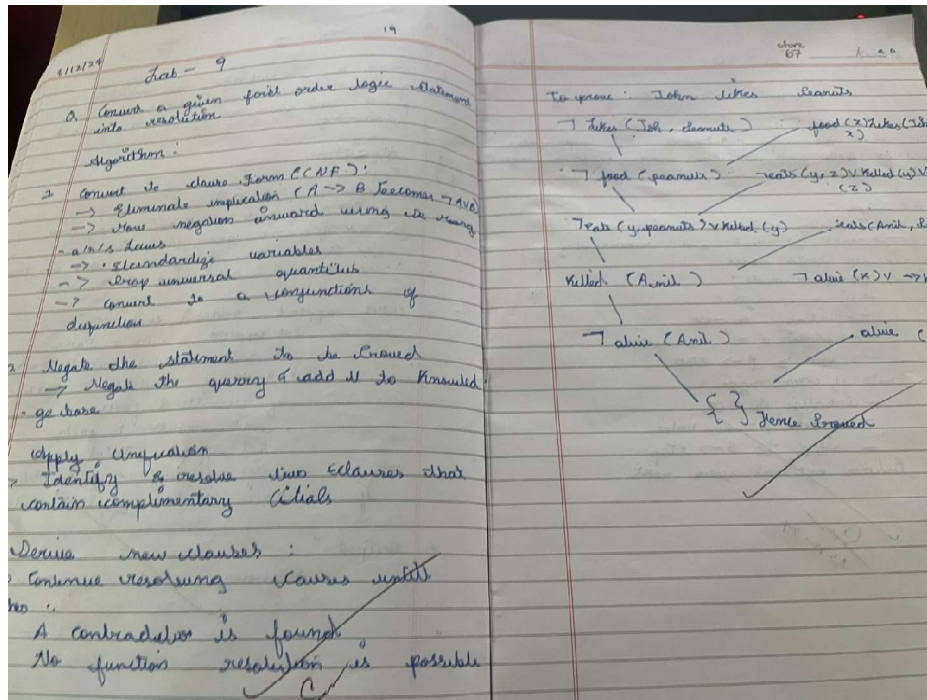 8/12/24
19
Lab - 9
Q Convert a given first order logic statement
into resolution
Algorithm :
1 Convert to clause Form (CNF) :
-> Eliminate implication (A -> B becomes ¬ A v B)
-> Move negation inward using De Morg
- an's Laws
-> Standardize variables
-> Drop universal quantifiers
-> convert to a conjunctions of
disjunction
Negate the statement to be Proved
-> Negate the querry & add it to Knowled
- ge base
Apply Unification
Identify & resolve two clauses that
contain complimentary
Derive new clauses :
Continue resolving clauses untill
A contradiction is found
No function resolution is possible
67
To prove : John likes Peanuts
¬ Likes (Joh, Peanuts)
food (x) Likes (Joh
x)
¬ food (peanuts)
¬eats (y, z) v killed (y) v
(z)
¬eats (y, peanuts) v killed (y)
eats (Anil,
Killed (Anil)
¬ alive (k) v ->
¬ alive (Anil)
alive (
{ } Hence Proved